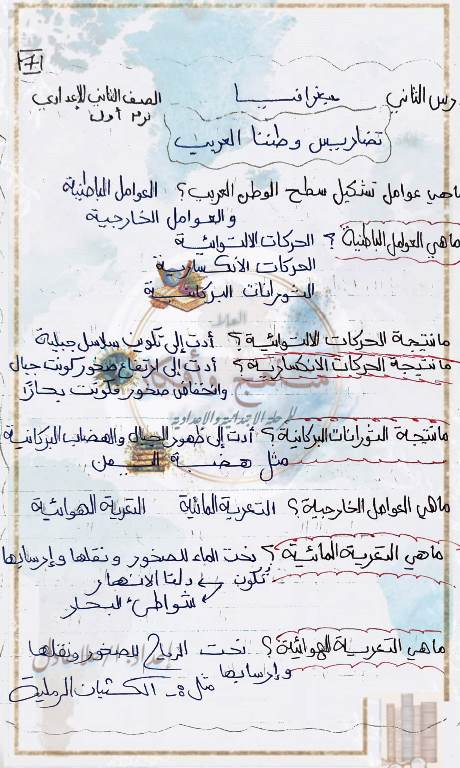 [7]
درس الثاني جغرافيا الصف الثاني الإعدادي
ترم أول
تضاريس وطننا العربي
ماهي عوامل تشكيل سطح الوطن العربي؟ العوامل الباطنية
والعوامل الخارجية
ماهي العوامل الباطنية؟ الحركات الالتوائية
الحركات الانكسارية
الثورانات البركانية
مانتيجة الحركات الالتوائية؟ أدت إلى تكون سلاسل جبلية
مانتيجة الحركات الانكسارية؟ أدت إلى ارتفاع صخور كونت جبال
وانخفاض صخور فكونت بحارًا
مانتيجة الثورانات البركانية؟ أدت إلى ظهور الجبال والهضاب البركانية
مثل هضبة اليمن
ماهي العوامل الخارجية؟ التعرية المائية التعرية الهوائية
ماهي التعرية المائية؟ نحت الماء للصخور ونقلها وإرسابها
تكون دلتا الانهار
شواطئ البحار
ماهي التعرية الهوائية؟ نحت الرياح للصخور ونقلها
وإرسابها مثل :- الكثبان الرملية
للمرحلة الابتدائية والاعدادية